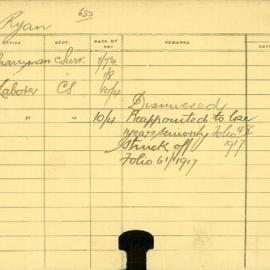 653
Ryan
OFFICE DEPT. RATE OF PAY REMARKS DATE
Surv.
Laborer CS 10/4
Dismissed
" " 10/4 Reappointed to lose
1 years seniority Folio
1917
Struck off
Folio 61/1917